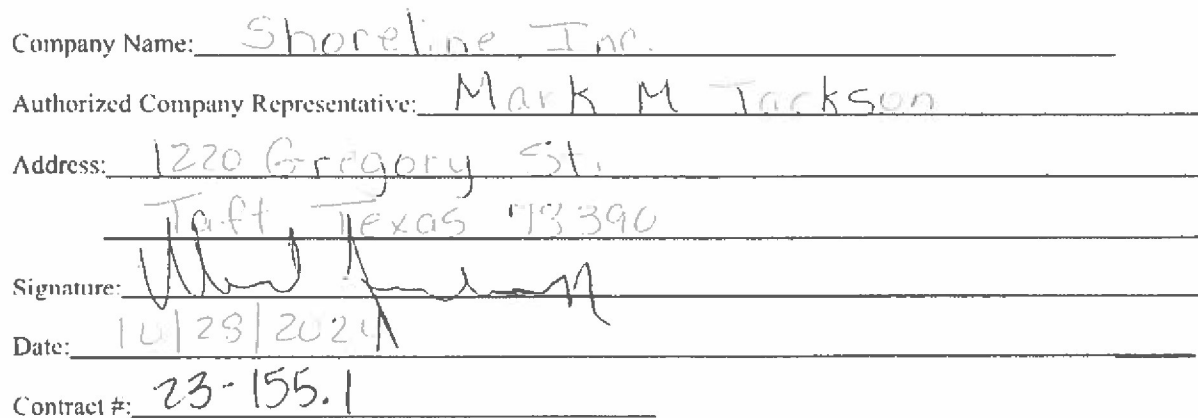 Company Name: Shoreline Inc.
Authorized Company Representative: Mark M Jackson
Address: 1220 Gregory St.
Taft Texas 78390
Signature:
Date: 10/28/2024
Contract #: 23-155.1